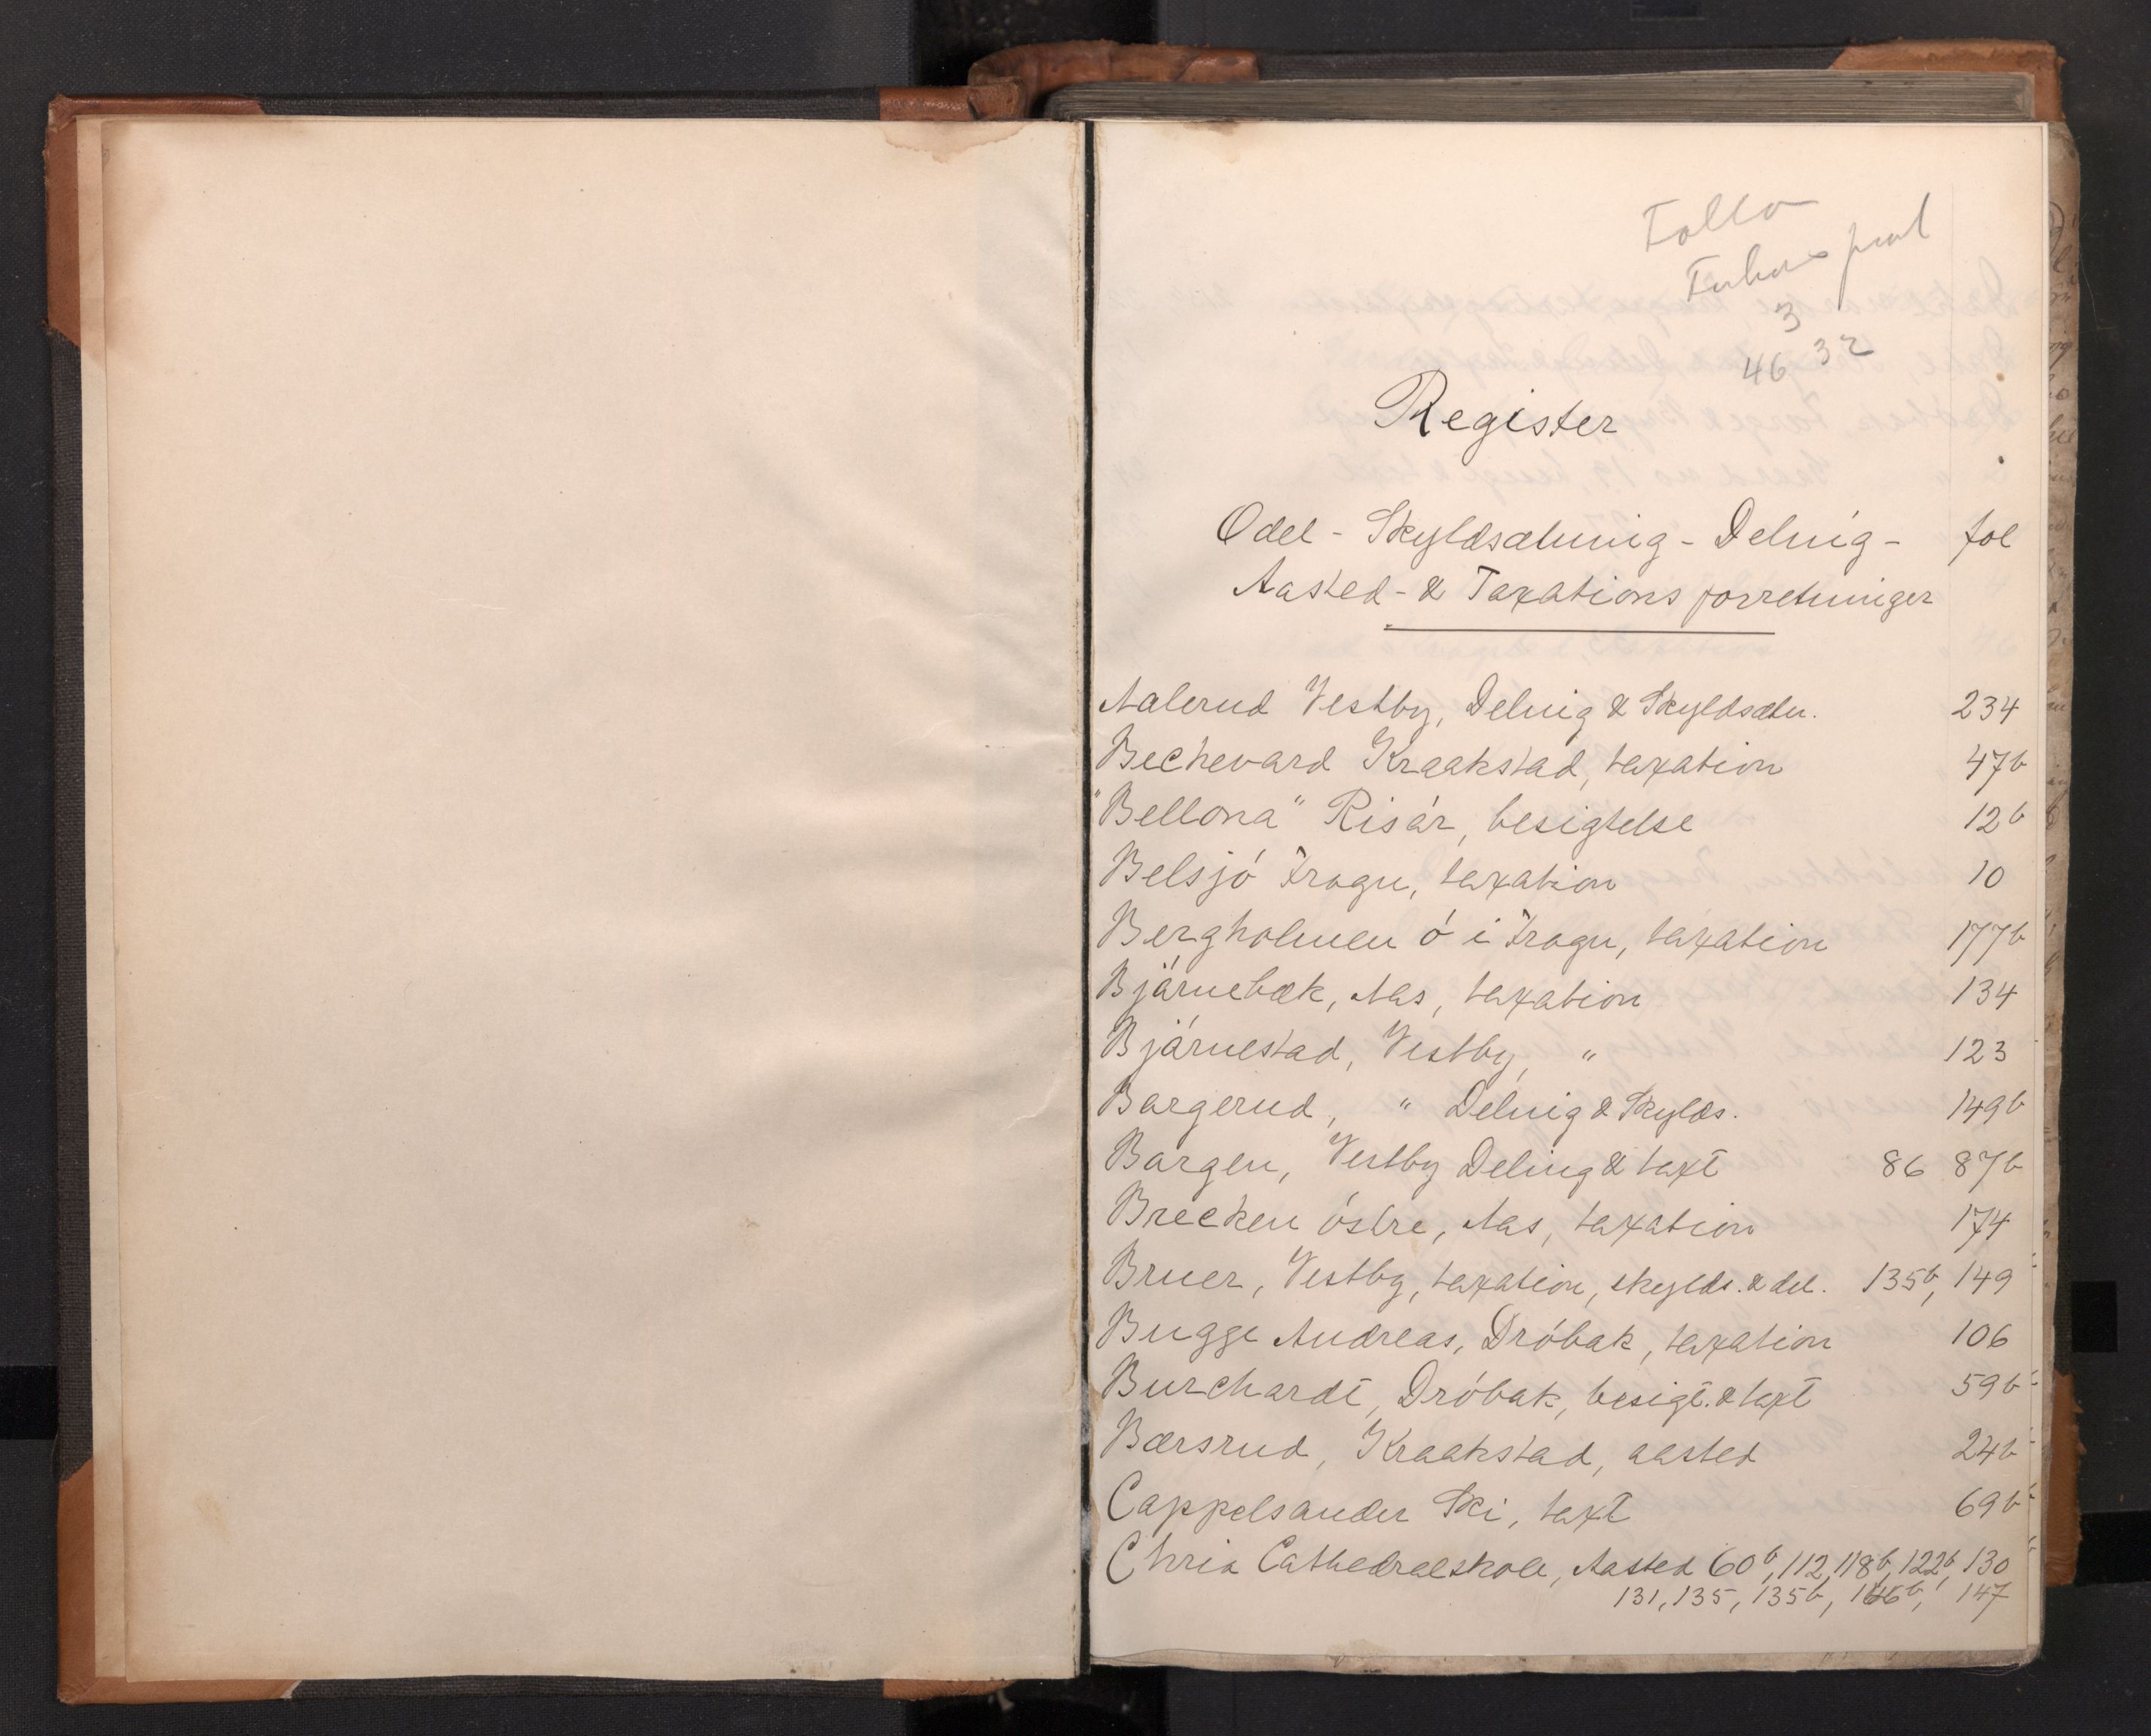 Follo
3
46 32
Register
Odel - Skyldsætning - Delnig - fol
Aasted - & Taxations forretninger
Aalerud Vestby, Delnig & Skyldsætn. 234
Bechevard Kraakstad, taxation 47b
"Bellona" Risár, besigtelse 12b
Belsjó Frogn, taxation 10
Bergholmen ó i Frogn, taxation 177b
Bjárnebæk, Aas, taxation 134
Bjárnestad, Vestby, " 123
Borgerud, " Delnig & Skylds. 149b
Borgen, Vestby Deling & taxt 86 87b
Brecken óstre, Aas, taxation 174
Bruer, Vestby, taxation, skylds. & del. 135b, 149
Bugge Andreas, Dróbak, taxation 106
Burchardt, Dróbak, besigt. & taxt 59b
Bærsrud, Kraakstad, aasted 24b
Cappelsanden Ski, taxt 69b
Chria Cathedralskole, Aasted 60b, 112, 118b, 122b, 130
131, 135, 135b, 146b, 147